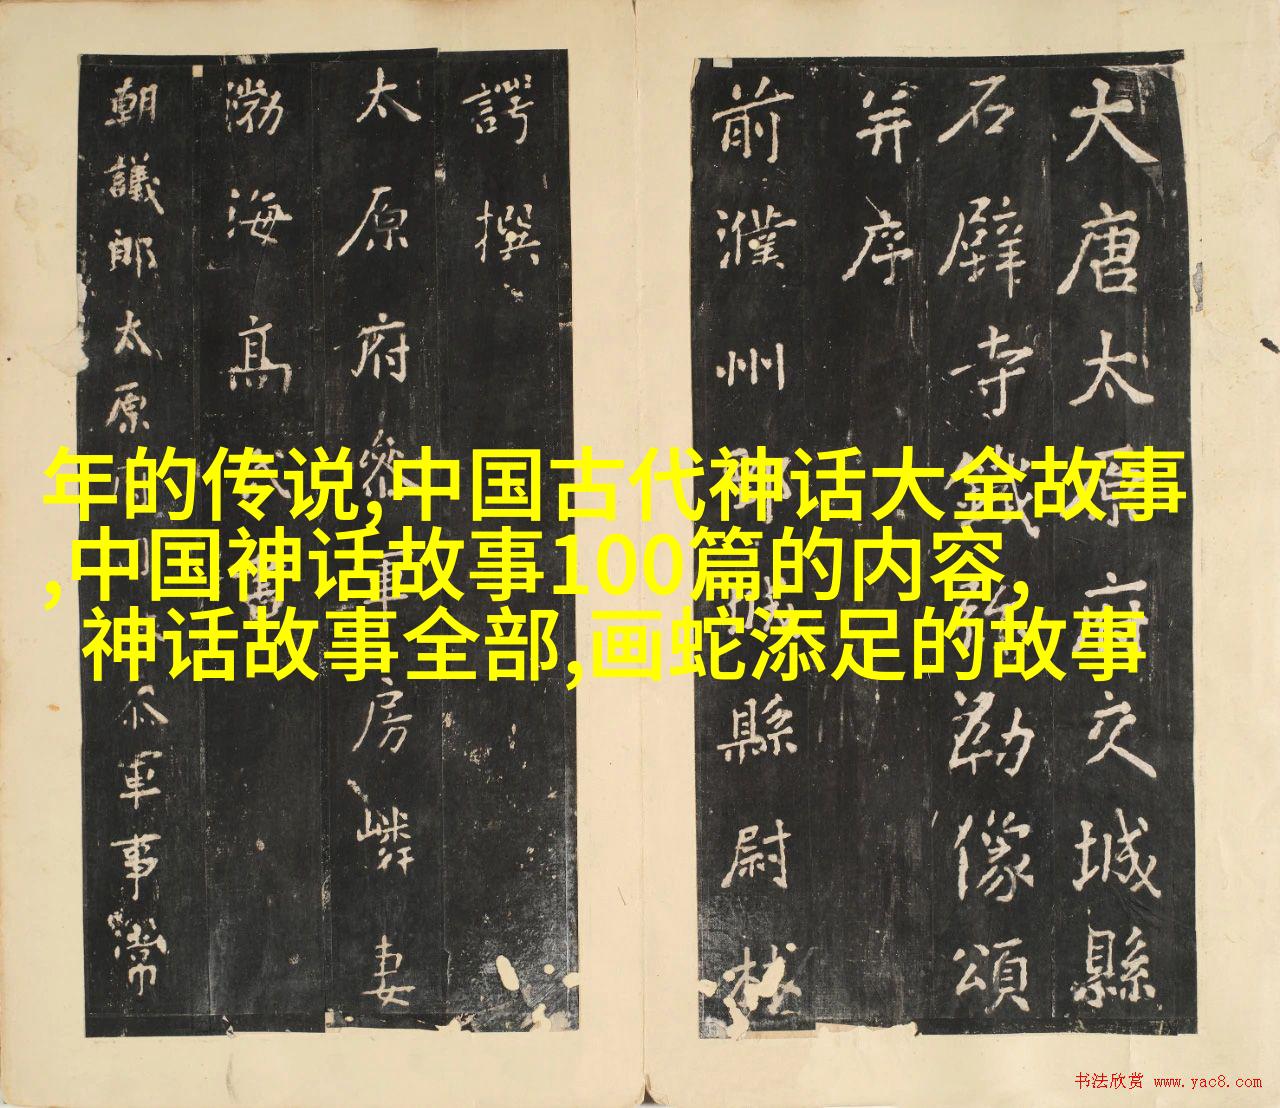 大唐太原府交城縣
石壁寺鐵弥勒像頌
并序
前濮州鄄城縣尉林
諤撰
太原府參軍房嶙妻
渤海高氏書
朝議郎太原府司錄參軍事常
年的传说,中国古代神话大全故事
,中国神话故事100篇的内容,
神话故事全部,画蛇添足的故事
书法欣赏 www.yac8.com